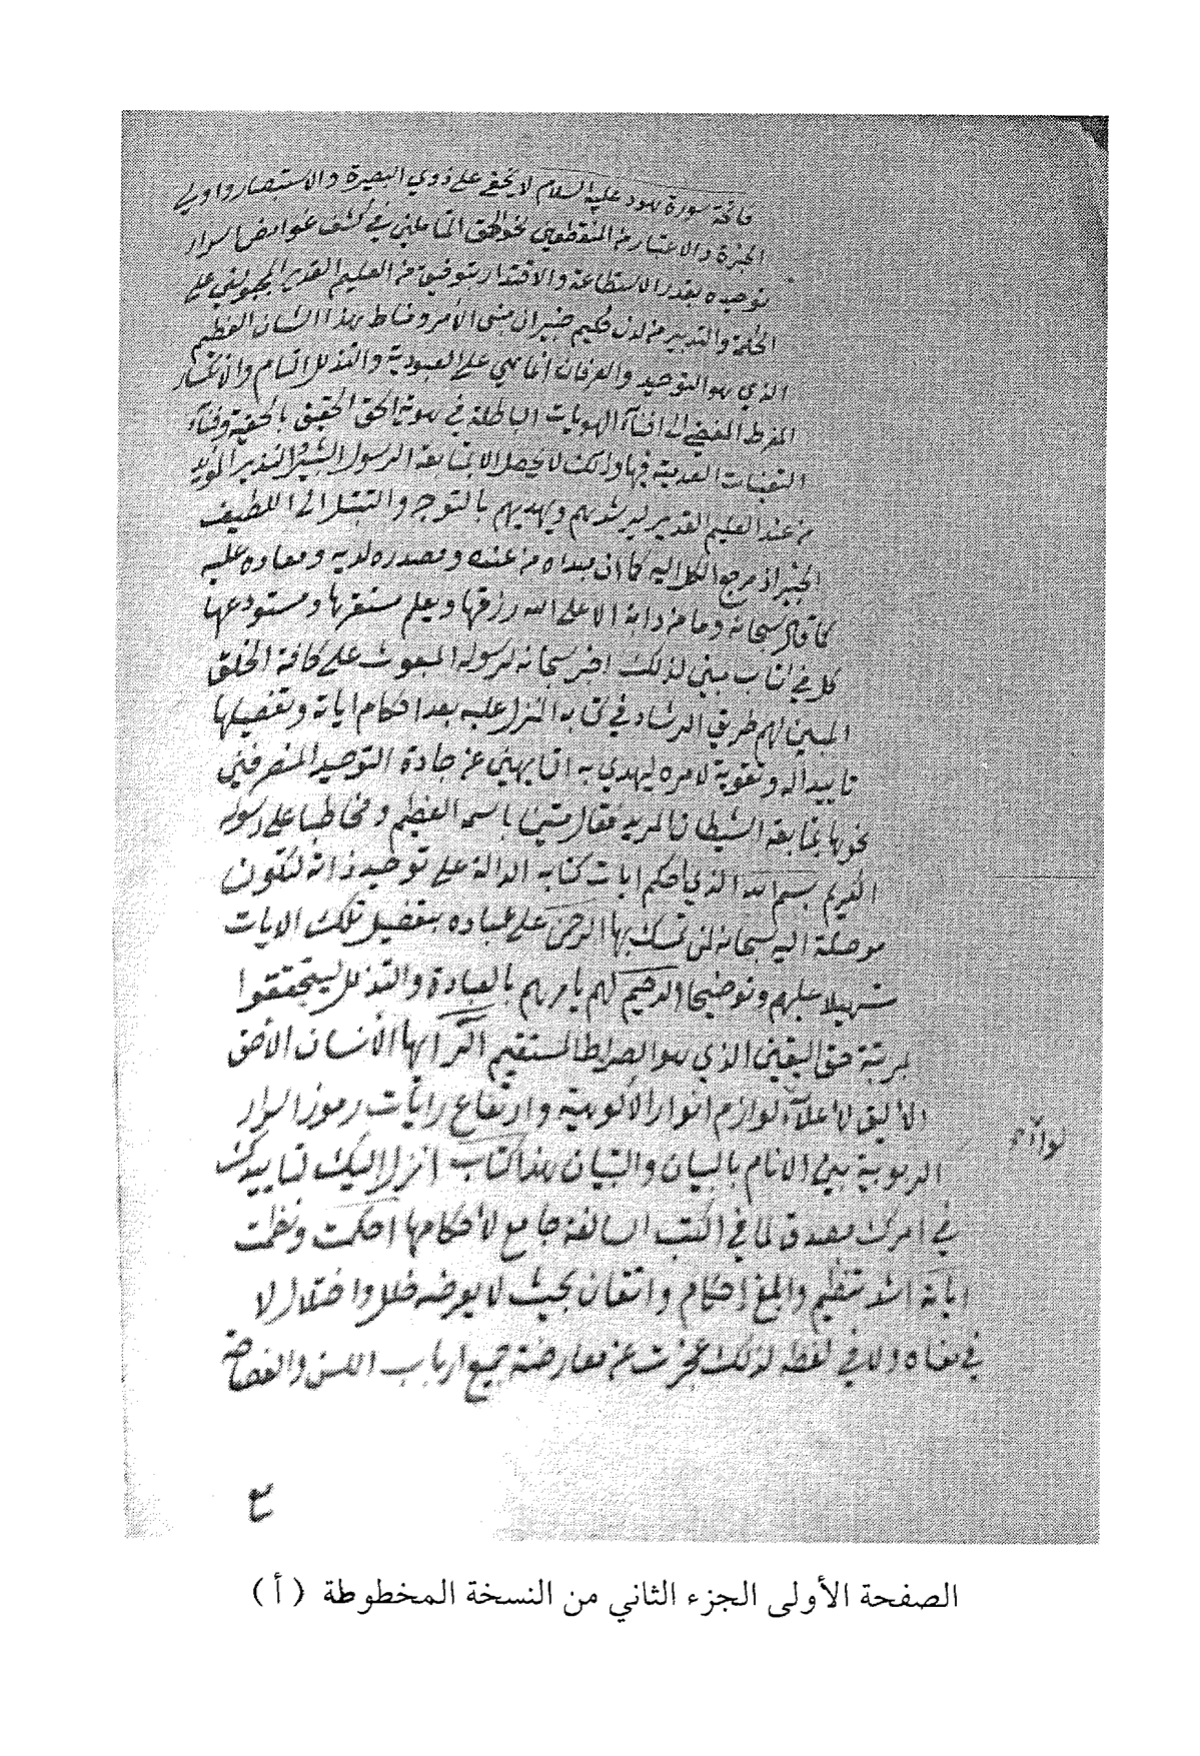 فاتحة سورة هود عليه السلام لا يخفى على ذوي البصيرة والاستبصار واولي
الخبرة والاعتبار من المنقطعين نحو الحق المتأملين في كشف غوامض اسرار
توحيده بقدر الاستطاعة والاقتدار بتوفيق من العليم القدير المجبولين على
الحكمة والتدبير من لدن حكيم خبير ان مبنى الأمر ومناط هذا الشان العظيم
الذي هو التوحيد والعرفان انما هي على العبودية والتذلل التام والانكسار
المفرط المفضي الى افناء الهويات الباطلة في هوية الحق الحقيق بالحقية وفناء
التعينات العدمية فيها وذلك لا يحصل الا بمتابعة الرسول البشير النذير المؤيد
من عند العليم القدير ليرشدهم ويهديهم بالتوجه والتبتل الى اللطيف
الخبير اذ مرجع الكل اليه كما ان مبداه من عنده ومصدره لديه ومعاده عليه
كما قال سبحانه وما من دابة الا على الله رزقها ويعلم مستقرها ومستودعها
كل في كتاب مبين لذلك اخبر سبحانه لرسوله المبعوث على كافة الخلق
المبين لهم طريق الرشاد في كتابه المنزل عليه بعد احكام اياته وتفصيلها
تاييدا له وتقوية لامره ليهدي به التايهين عن جادة التوحيد المنصرفين
نحوها بمتابعة الشيطان المريد فقال متيمنا باسمه العظيم ومخاطبا على رسوله
الكريم بسم الله الذي احكم ايات كتابه الدالة على توحيد ذاته لتكون
موصلة اليه سبحانه لمن تمسك بها الرحمن على عباده بتفصيل تلك الايات
تسهيلا عليهم وتوضيحا الرحيم لهم يامرهم بالعبادة والتذلل ليتحققوا
بمرتبة حق اليقين الذي هو الصراط المستقيم الر ايها الأنسان الأحق
الأليق لأعلاء لوازم انوار الألوهية وارتفاع رايات رموز اسرار
لواء
الربوبية بين الانام بالبيان والتبيان هذا كتاب انزل اليك لتاييدك
في امرك مصدق لما في الكتب السالفة جامع لأحكامها احكمت ونظمت
اياته اشد تنظيم وابلغ إحكام واتقان بحيث لا يعرضه خلل واختلال لا
في معناه ولا في لفظه لذلك عجزت عن معارضته جميع ارباب اللسن والفصاحة
الصفحة الأولى الجزء الثاني من النسخة المخطوطة (أ)